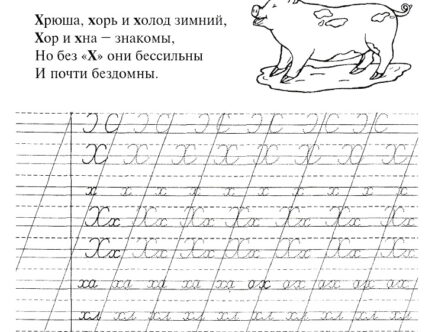 Хрюша, хорь и холод зимний,
Хор и хна – знакомы,
Но без «Х» они бессильны
И почти бездомны.
Х Х Х Х Х Х Х Х
х х х х х х х х х х
Хх Хх Хх Хх Хх Хх Хх
Хх Хх Хх Хх Хх Хх Хх
ха ха ха ха ха ах ах ах ах ах
хл хл хл хл хл хл хл хл хл